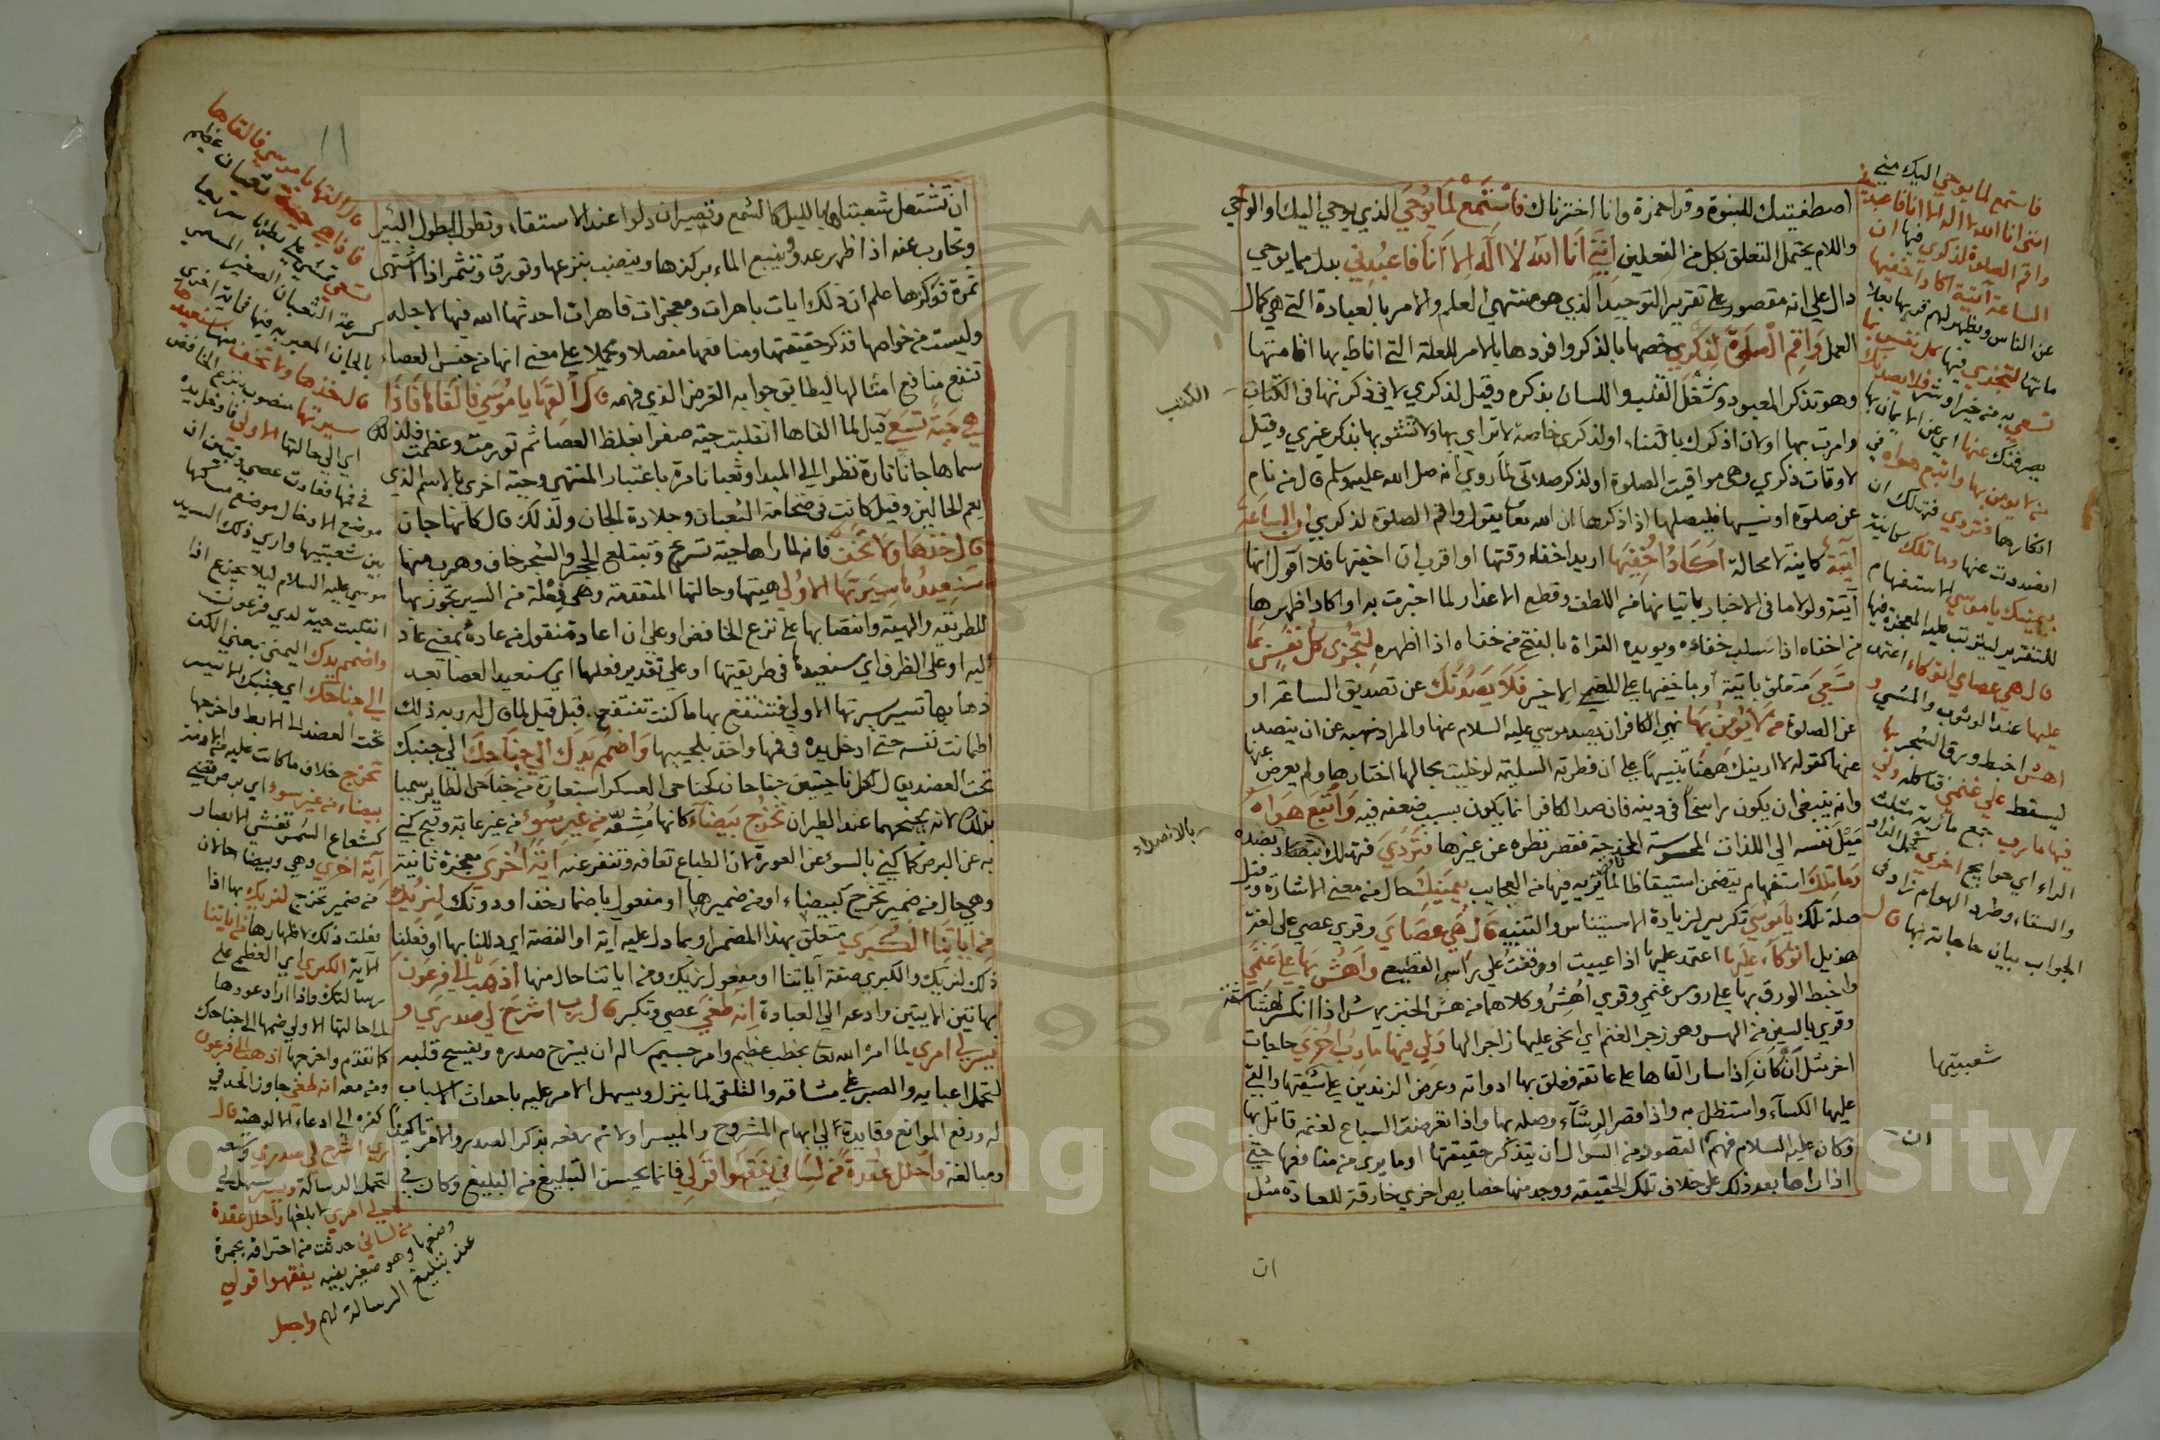 اصطفيتك للنبوة وقرا حمزة وانا اخترناك فاستمع لما يوحي الذي يوحي اليك او الوحي
واللام يحتمل التعلق بكل من الفعلين انني انا الله لا اله الا انا فاعبدني بدل مما يوحي
دال علي انه مقصور علي تقرير التوحيد الذي هو منتهي العلم والامر بالعبادة التي هي كمال
العمل واقم الصلوة لذكري خصها بالذكر وافردها بالامر للعلة التي اناط بها اقامتها
وهو تذكر المعبود وشغل القلب واللسان بذكره وقيل لذكري لاني ذكرتها في الكتاب
وامرت بها اولان اذكرك بالثناء اولذكري خاصة لا تراي بها ولا تشوبها بذكر غيري وقيل
لاوقات ذكري وهي مواقيت الصلوة اولذكر صلاتي لما روي انه صلي الله عليه وسلم قال من نام
عن صلوة او نسيها فليصلها اذا ذكرها ان الله تعا يقول واقم الصلوة لذكري ان الساعة
آتية كاينة لا محالة اكاد اخفيها اريد اخفاء وقتها او اقرب ان اخفيها فلا اقول انها
آتية ولولا ما في الاخبار باتيانها من اللطف وقطع الاعذار لما اخبرت به او اكاد اظهرها
من اخفاه اذا سلب خفاءه ويويده القراة بالفتح من خفاه اذا اظهره لتجزي كل نفس بما
تسعي متعلق باتية او باخفيها علي المعني الاخير فلا يصدنك عن تصديق الساعة او
عن الصلوة من لا يؤمن بها نهي الكافر ان يصد موسي عليه السلام عنها والمراد نهيه عن ان ينصد
عنها كقوله لا ارينك ههنا تنبيها علي ان فطرته السليمة لو خليت بحالها اختارها ولم يعرض عنها
وانه ينبغي ان يكون راسخا في دينه فان صد الكافر انما يكون بسبب ضعفه فيه واتبع هواه
ميل نفسه الي اللذات المحسوسة المخدجة فقصر نظره عن غيرها فتردي فتهلك بصده
وما تلك استفهام يتضمن استيقاظا لما يريه فيها من العجايب بيمينك حال من معني الاشارة وقيل
صلة تلك يا موسي تكرير لزيادة الاستيناس والتنبيه قال هي عصاي وقري عصي علي لغة
هذيل اتوكاء عليها اعتمد عليها اذا عييت او وقفت علي راس القطيع واهش بها علي غنمي
واخبط الورق بها علي روس غنمي وقري اهش وكلاهما من هش الخبز يهش اذا انكسر لهشاشته
وقري بالسين من الهس وهو زجر الغنم اي انحي عليها زاجرا لها ولي فيها مارب اخري حاجات
اخر مثل ان كان اذا سار القاها علي عاتقه فعلق بها ادواته وعرض الزندين علي شعبتيها والقي
عليها الكساء واستظل به واذا قصر الرشاء وصله بها واذا تعرضت السباع لغنمه قاتل بها
وكان عليه السلام فهم المقصود من السوال ان يتذكر حقيقتها وما يري من منافعها حتي
اذا راها بعد ذلك علي خلاف تلك الحقيقة ووجد منها خصايص اخري خارقة للعادة مثل
ان
فاستمع لما يوحي اليك مني
انني انا الله لا اله الا انا فاعبدني
واقم الصلوة لذكري فيها ان
الساعة آتية اكاد اخفيها
عن الناس ويظهر لهم قربها بعلا
ماتها لتجزي فيها كل نفس بما
تسعي به من خير او شر فلا يصدنك
يصرفنك عنها اي عن الايمان بها
من لا يومن بها واتبع هواه في
انكارها فتردي فتهلك ان
انصددت عنها وما تلك كاينة
بيمينك يا موسي الاستفهام
للتقرير ليترتب عليه المعجزة فيها
قال هي عصاي اتوكاء اعتمد
عليها عند الوثوب والمشي و
اهش اخبط ورق الشجر بها
ليسقط علي غنمي فتاكله ولي
فيها مارب جمع ماربة مثلث
الراء اي حوايج اخري كحمل الزاد
والسقاء وطرد الهوام زاد في
الجواب بيان حاجاته بها قال
الكتب
بالانصداد
شعبتيها
ان
١١
ان تشتعل شعبتاها بالليل كالشمع وتصيران دلوا عند الاستقاء وتطول بطول البئر
وتحارب عنه اذا ظهر عدو وينبع الماء بركزها وينضب بنزعها وتورق وتثمر اذا اشتهي
ثمرة فركزها علم ان ذلك ايات باهرات ومعجزات قاهرات احدثها الله فيها لاجله
وليست من خواصها فذكر حقيقتها ومنافعها مفصلا ومجملا علي معني انها من جنس العصاء
تنفع منافع امثالها ليطابق جوابه الغرض الذي فهمه قال القها يا موسي فالقاها فاذا
هي حية تسعي قيل لما القاها انقلبت حية صفرا بغلظ العصا ثم تورمت وعظمت فلذلك
سماها جانا تارة نظرا الي المبدا وثعبانا مرة باعتبار المنتهي وحية اخري بالاسم الذي
يعم الحالين وقيل كانت في ضخامة الثعبان وجلادة الجان ولذلك قال كانها جان
قال خذها ولا تخف فانه لما راها حية تسرع وتبتلع الحجر والشجر خاف وهرب منها
سنعيدها سيرتها الاولي هيئتها وحالتها المتقدمة وهي فعلة من السير تجوز بها
للطريقة والهيئة وانتصابها علي نزع الخافض او علي ان اعاد منقول من عاده بمعني عاد
اليه او علي الظرف اي سنعيدها في طريقتها او علي تقدير فعلها اي سنعيد العصا بعد
ذهابها تسير سيرتها الاولي فتنتفع بها ما كنت تنتفع قبل قيل لما قال له ربه ذلك
اطمانت نفسه حتي ادخل يده في فمها واخذ بلحييها واضمم يدك الي جناحك الي جنبك
تحت العضد يقال لكل ناحيتين جناحان كجناحي العسكر استعارة من جناحي الطاير سميا
بذلك لانه يجنحهما عند الطيران تخرج بيضاء كانها مشعة من غير سوء من غير عاهة وقبح كني
به عن البرص كما كني بالسوءة عن العورة لان الطباع تعافه وتنفر عنه آية اخري معجزة ثانية
وهي حال من ضمير تخرج كبيضاء او من ضميرها او مفعول باضمار خذ او دونك لنريك
من اياتنا الكبري متعلق بهذا المضمر او بما دل عليه آية او القصة اي دللنا بها او فعلنا
ذلك لنريك والكبري صفة آياتنا او مفعول نريك ومن اياتنا حال منها اذهب الي فرعون
بهاتين الايتين وادعه الي العبادة انه طغي عصي وتكبر قال رب اشرح لي صدري و
يسر لي امري لما امره الله تعا بخطب عظيم وامر جسيم سال ان يشرح صدره ويفسح قلبه
لتحمل اعبايه والصبر علي مشاقه والتلقي لما ينزل ويسهل الامر عليه باحداث الاسباب
له ورفع الموانع وفايدة لي ابهام المشروح والميسر اولا ثم رفعه بذكر الصدر والامر تاكيدا
ومبالغة واحلل عقدة من لساني يفقهوا قولي فانما يحسن التبليغ من البليغ وكان في
قال القها يا موسي فالقاها
فاذا هي حية ثعبان عظيم
تسعي تمشي علي بطنها سريعا
كسرعة الثعبان الصغير المسمي
بالجان المعبر به فيها في اية اخري
قال خذها ولا تخف منها سنعيدها
سيرتها منصوب بنزع الخافض
اي الي حالتها الاولي فادخل يده
في فمها فعادت عصي وتبين ان
موضع الادخال موضع مسكها
بين شعبتيها واري ذلك السيد
موسي عليه السلام ليلا يجزع اذا
انقلبت حية لدي فرعون
واضمم يدك اليمني بمعني الكف
الي جناحك اي جنبك الايسر
تحت العضد الي الابط واخرجها
تخرج خلاف ما كانت عليه من الادمة
بيضاء من غير سوء اي برص تضيي
كشعاع الشمس تغشي الابصار
آية اخري وهي وبيضا حالان
من ضمير تخرج لنريك بها اذا
فعلت ذلك لاظهارها من اياتنا
الآية الكبري اي العظمي علي
رسالتك واذا اراد عودها
لحالتها الاولي ضمها الي جناحك
كما تقدم واخرجها اذهب الي فرعون
ومن معه انه طغي جاوز الحد في
كفره الي ادعاء الالوهية قال
رب اشرح لي صدري وسعه
لتحمل الرسالة ويسر سهل لي
امري لابلغها واحلل عقدة
من لساني حدثت من احتراقه بجمرة
وضعها وهو صغير بفيه يفقهوا قولي
عند تبليغ الرسالة لهم واجعل
Copyright © King Saud University
1957